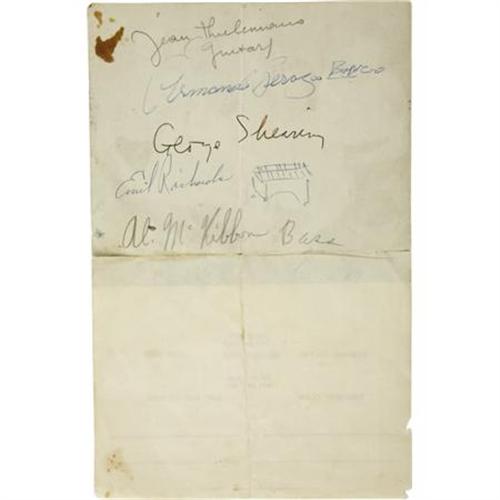 Jean Thielemans
Guitar
Armando Peraza Bongo
George Shearing
Emil Richards
Al. McKibbon Bass